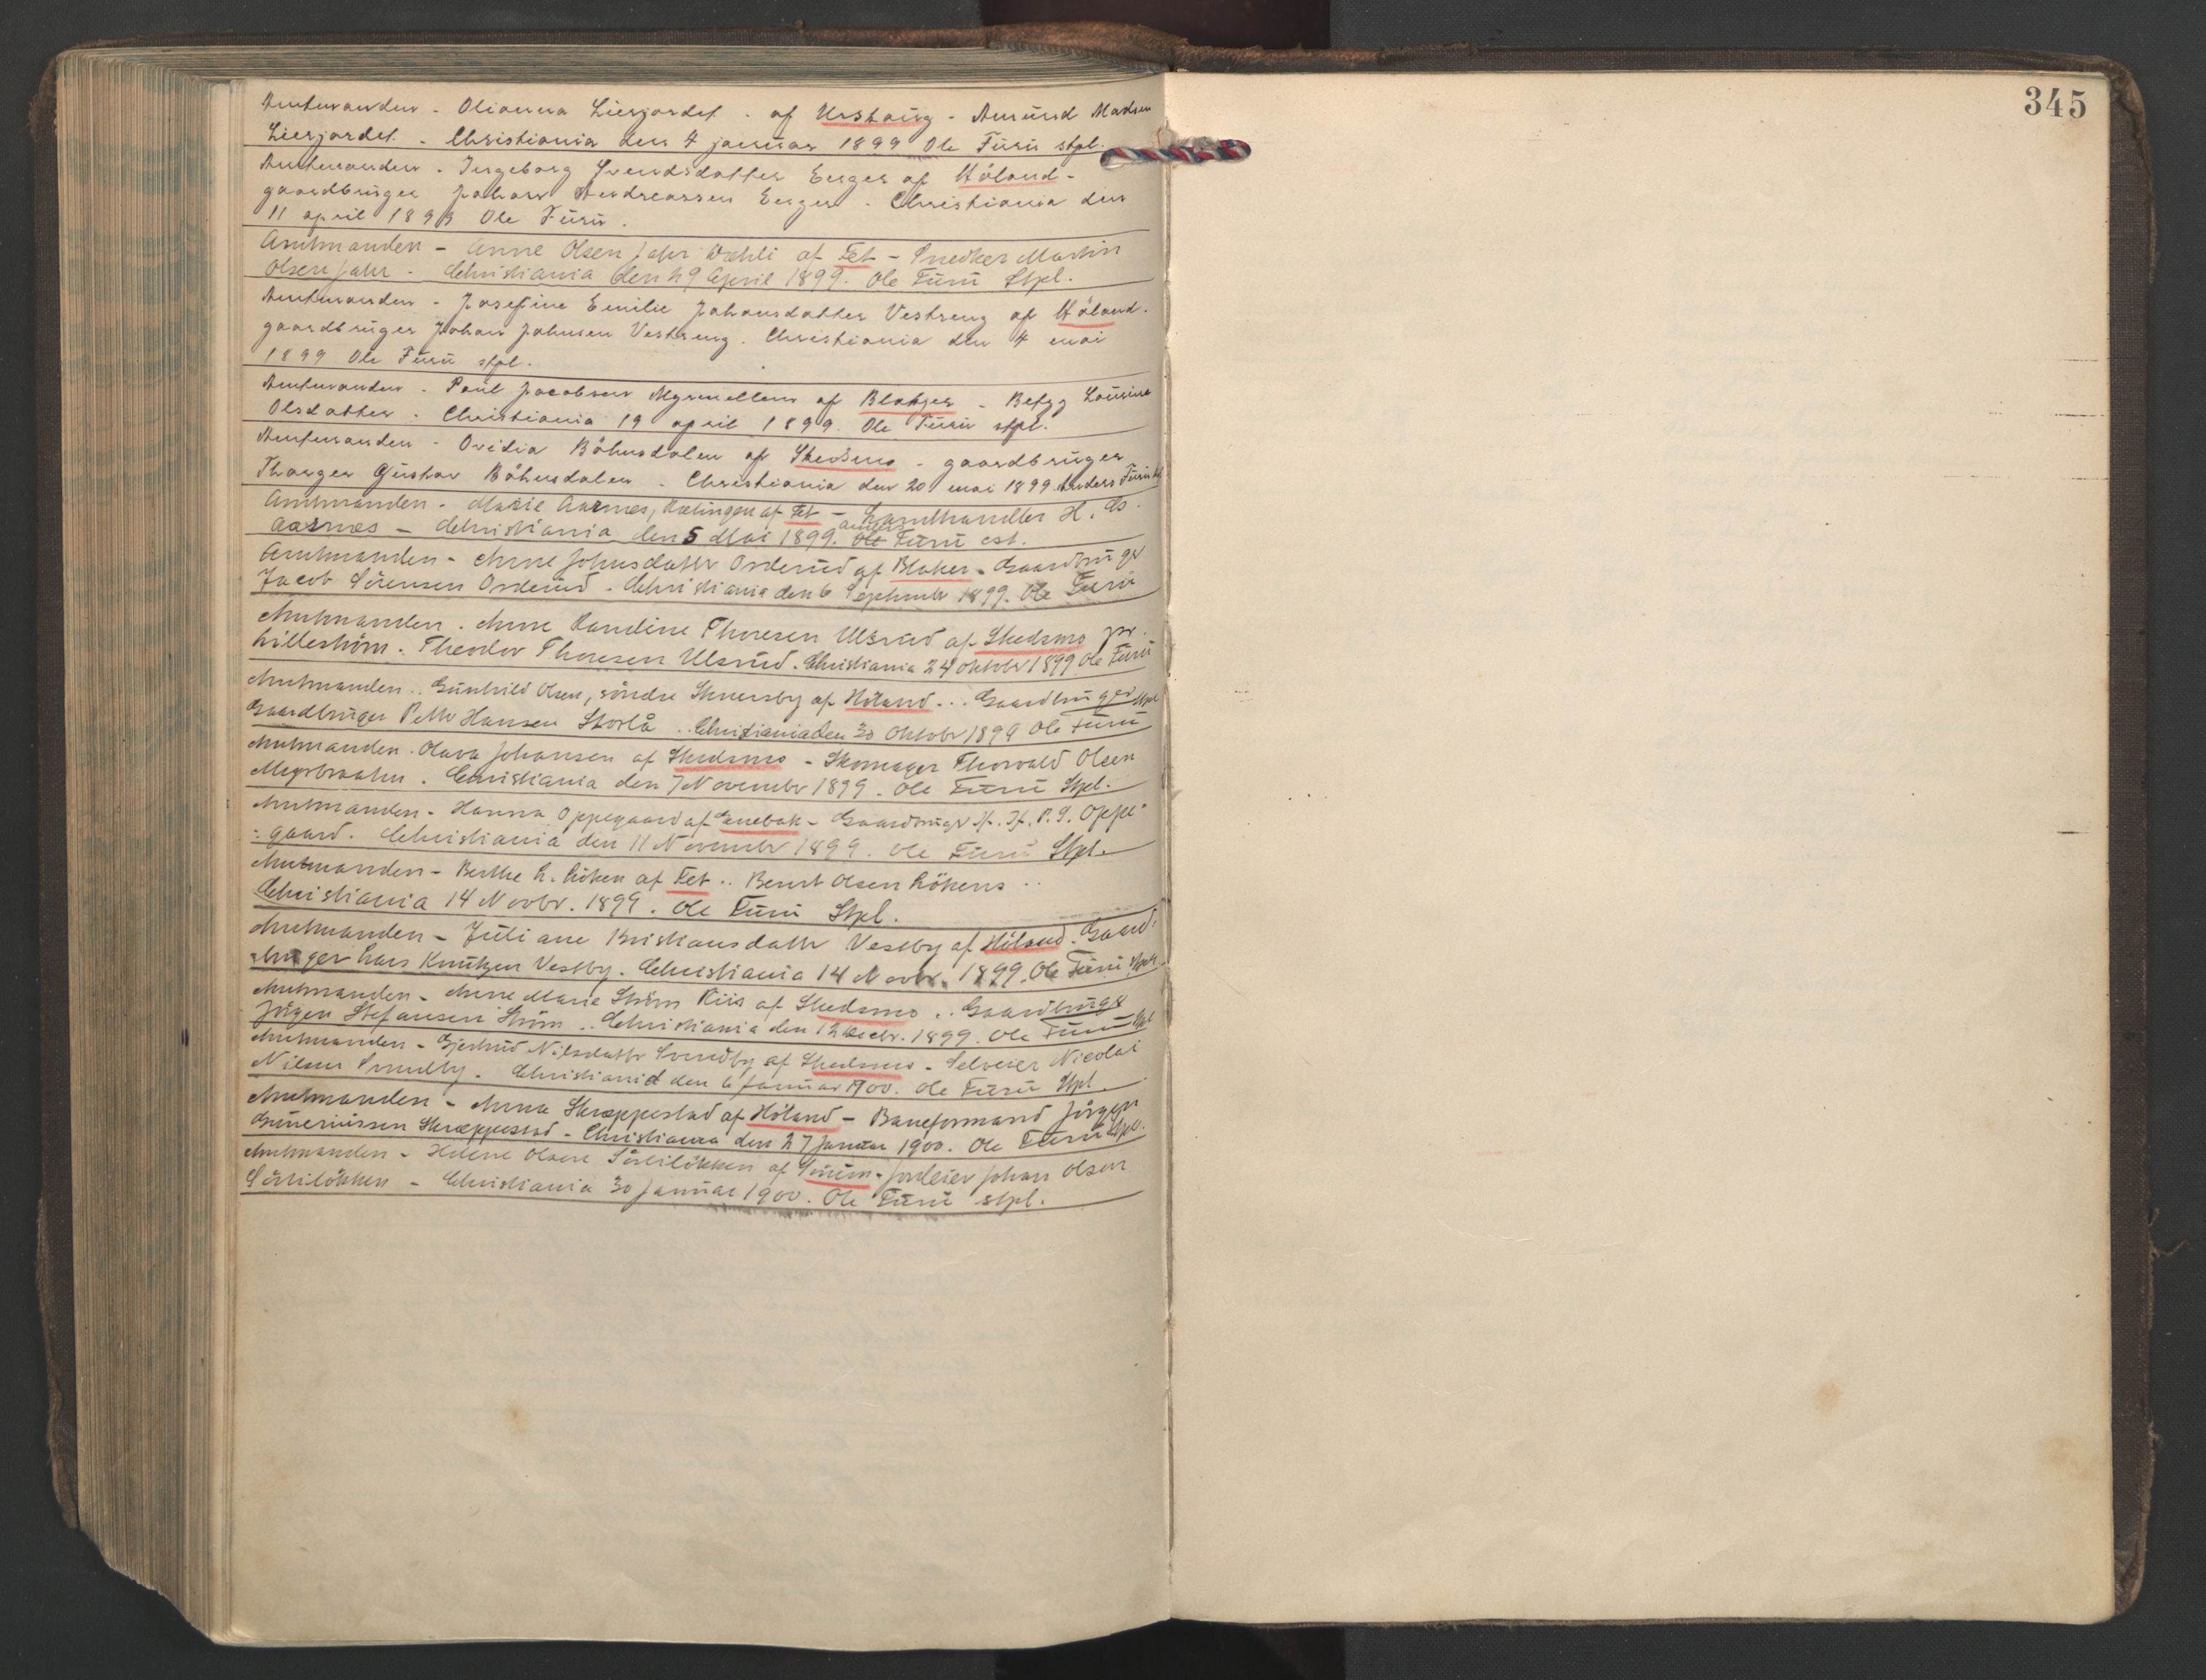 345
Amtmanden - Olianna Lierjordet - af Urskoug - Amund Madsen
Lierjordet - Christiania den 4 januar 1899 Ole Furu stpl.
Amtmanden - Ingeborg Svendsdatter Enger af Höland -
gaardbruger Johan Andreassen Enger - Christiania den
11 april 1899 Ole Furu.
Amtmanden - Anne Olsen Jahr af Fet - Snedker Martin
Olsen Jahr - Christiania den 29 April 1899. Ole Furu Stpl.
Amtmanden - Josefine Emilie Johansdatter Vestreng af Höland.
gaardbruger Johan Johnsen Vestreng. Christiania den 4 mai
1899 Ole Furu stpl.
Amtmanden - Paul Jacobsen af Blakjer - Betzy Lousine
Olsdatter. Christiania 19 april 1899. Ole Furu stpl.
Amtmanden - Ovidia Böhnsdalen af Skedsmo - gaardbruger
Thorger Gustav Böhnsdalen - Christiania den 20 mai 1899. Anders Furu
Amtmanden - Marie Aarnæs, Rælingen af Fet - Landhandler H. As.
Aarnæs - Christiania den 5 Mai 1899. Ole Anders Furu cst.
Amtmanden - Anne Johnsdatter Orderud af Blaker - Gaardbruger
Jacob Sörensen Orderud - Christiania den 6 September 1899. Ole Furu
Amtmanden. Anne Karoline Thoresen Ulsrud af Skedsmo pr.
Lilleström. Theodor Thoresen Ulsrud. Christiania 24 Oktober 1899 Ole Furu
Amtmanden.. Gunhild Olsen, söndre af Höland... Gaardbruger Stpl
Gaardbruger Petter Hansen Storlå.. Christiania den 30 Oktober 1899 Ole Furu
Amtmanden. Olava Johansen af Skedsmo - Skomager Thorvald Olsen
Myrbraaten. Christiania den 7 November 1899. Ole Furu Stpl.
Amtmanden - Hanna Oppegaard af Enebak - Gaardbruger H. H. P. S. Oppe-
-gaard. Christiania den 11 November 1899. Ole Furu Stpl.
Amtmanden - Berthe L. Löken af Fet.. Bernt Olsen Lökens..
Christiania 14 Novbr. 1899. Ole Furu Stpl.
Amtmanden - Juliane Kristiansdatter Vestby af Höland. Gaard-
bruger Lars Knutzen Vestby. Christiania 14 Novbr. 1899. Ole Furu Stpl.
Amtmanden - Anne Marie Ström Riis af Skedsmo.. Gaardbruger
Jörgen Stefansen Ström.. Christiania den 12 Decbr. 1899. Ole Furu Stpl
Amtmanden - Gjertrud Nilsdatter Svendby af Skedsmo - Selveier Nicolai
Nilsen Svendby. Christiania den 6 Januar 1900. Ole Furu Stpl.
Amtmanden - Anna Skræppestad af Höland - Baneformand Jörgen
Guneriussen Skræppestad - Christiania den 27 Januar 1900. Ole Furu Stpl.
Amtmanden - Helene Olsen Sörlilökken af Sörum - Jordeier Johan Olsen
Sörlilökken - Christiania 30 Januar 1900. Ole Furu stpl.